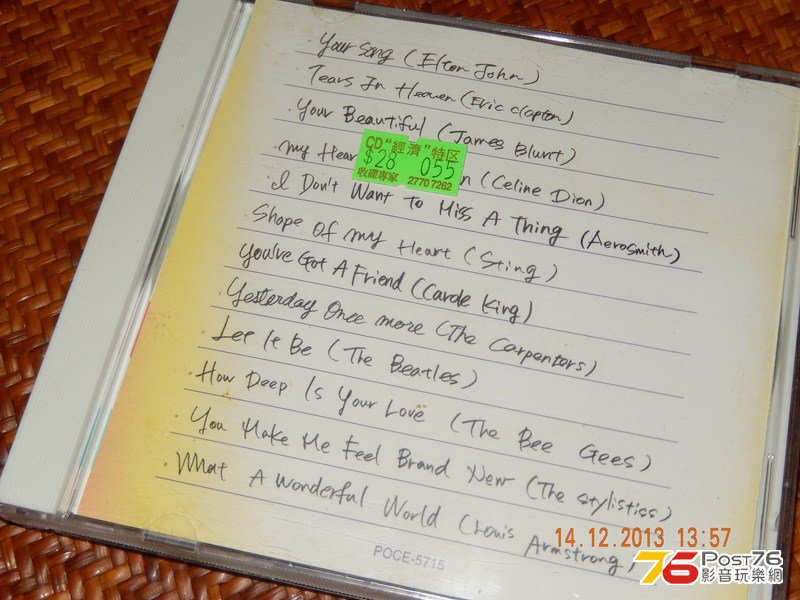 · Your Song (Elton John)
· Tears In Heaven (Eric Clapton)
· Your Beautiful (James Blunt)
· My Hear n (Celine Dion)
CD "經濟"特区
$28 055
收碟專家 2770 7262
· I Don't Want To Miss A Thing (Aerosmith)
· Shape Of my Heart (Sting)
· You've Got A Friend (Carole King)
· Yesterday Once more (The Carpentors)
· Let It Be (The Beatles)
· How Deep Is Your Love (The Bee Gees)
· You Make Me Feel Brand New (The Stylistiss)
· What A Wonderful World (Louis Armstrong)
POCE-5715
14.12.2013 13:57
76 Post76
影音玩樂網